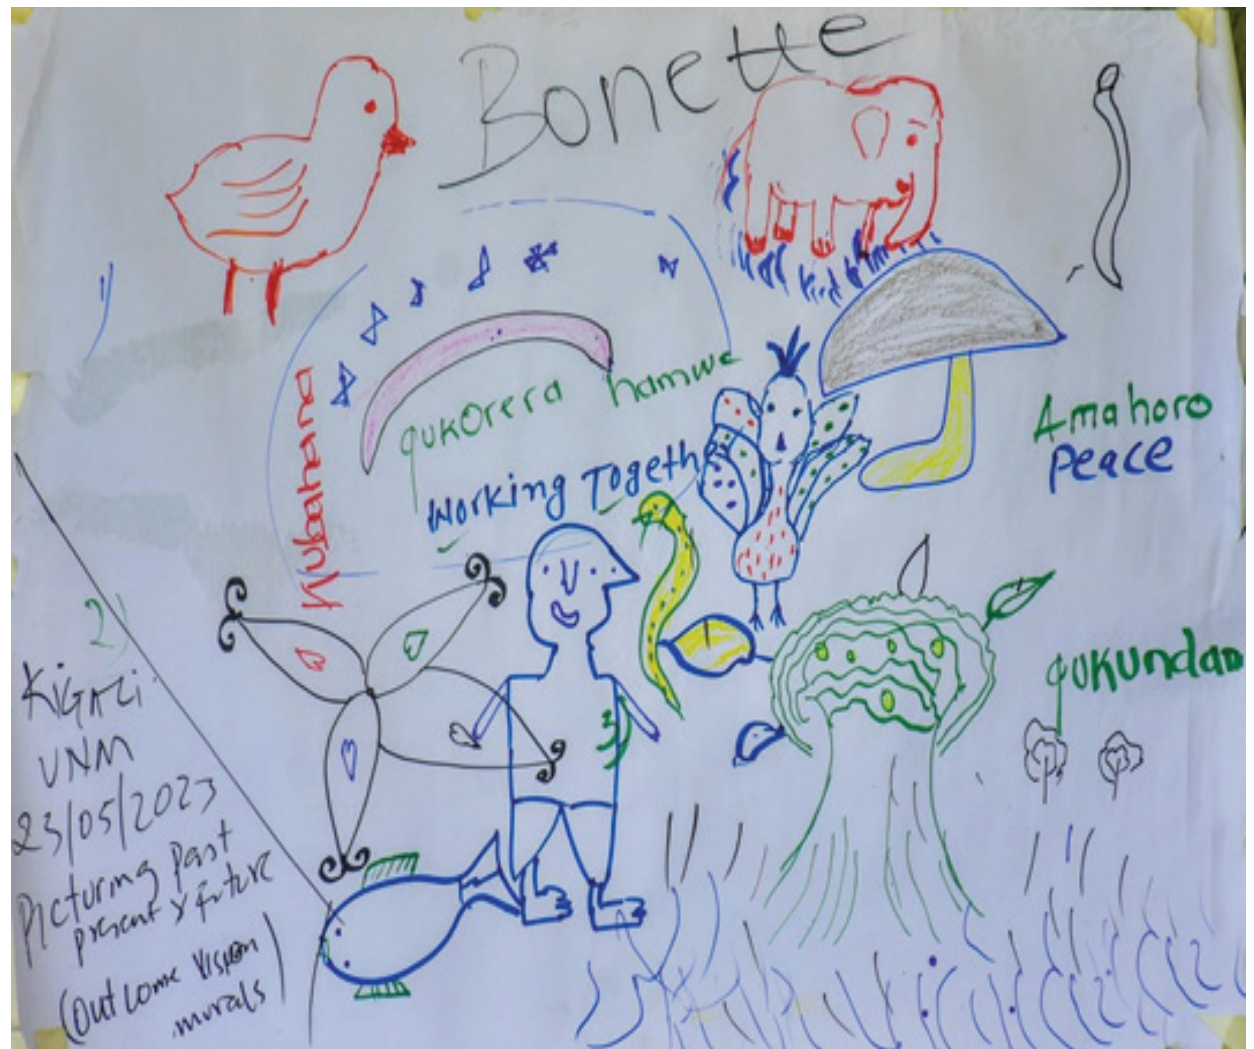 Bonette
1)
qukOrera hamwe
Working Together
Amahoro
Peace
2)
KiGALi
UNM
23/05/2023
Picturing Past
present & future
(outcome vision
murals)